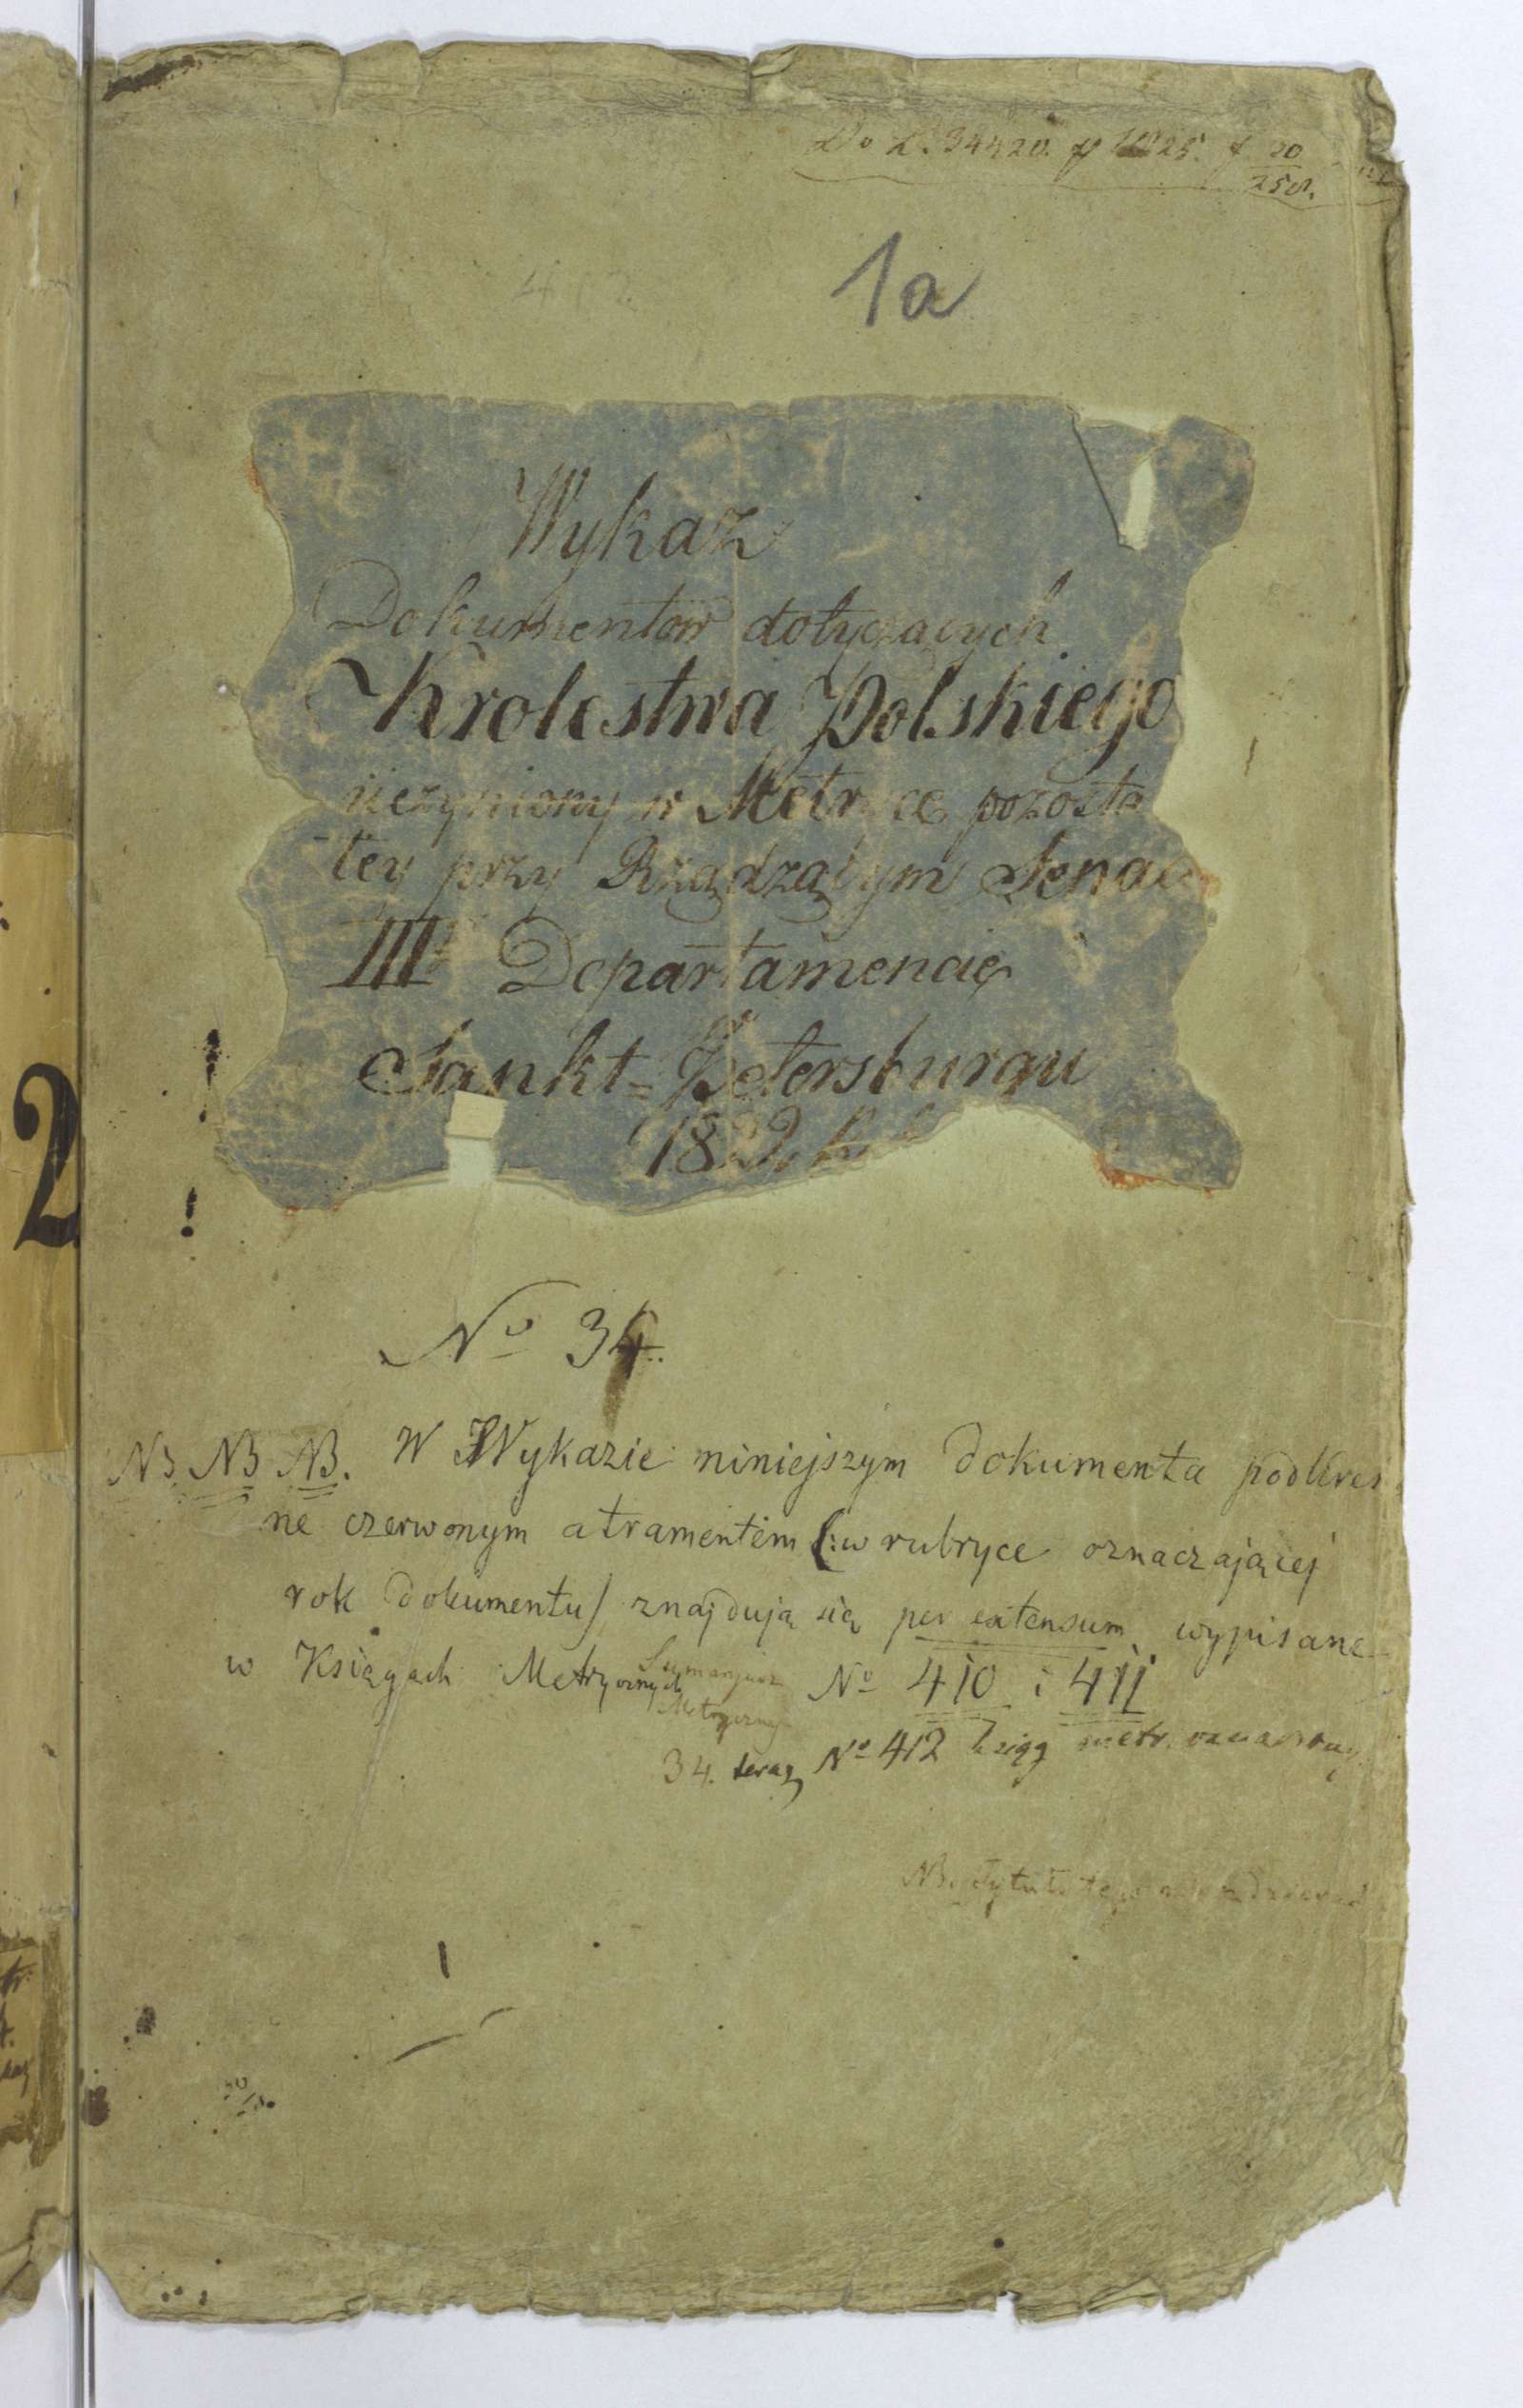 Do L. 34420.
20
250.
1a
Wykaz
Dokumentow dotyczących
Krolestwa Polskiego
uczyniony w Metryce pozosta
łey przy Rządzącym Senac
III Departamencie
Sankt=Petersburgu
182
2
No 34.
NB NB NB. W Wykazie niniejszym dokumenta podkreś
ne czerwonym atramentem (:w rubryce oznaczającej
rok dokumentu/ znajdują się per extensum wypisane
w Księgach Metrycznych No 410 i 411
Sumaryusz
Metryczny
34. teraz No 412 Ksiąg metr. oznaczony
NB. tytuł